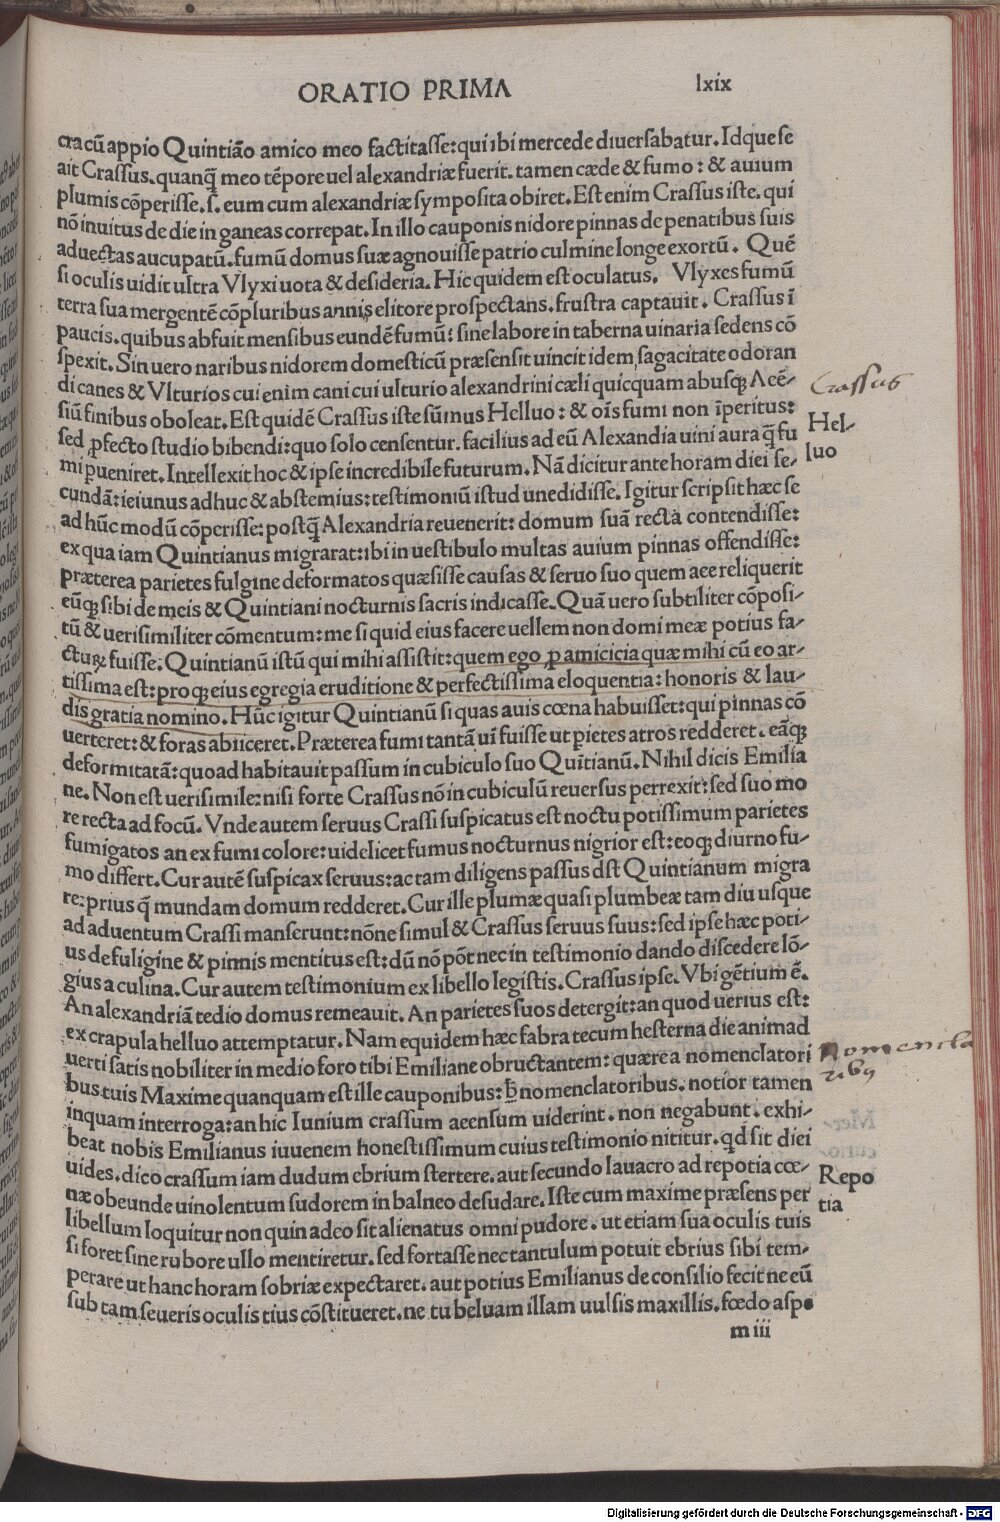 ORATIO PRIMA
lxix
cracū appio Quintiāo amico meo factitasse: qui ibi mercede diuersabatur. Idque se
ait Crassus. quanq̄ meo tēpore uel alexandriæ fuerit. tamen cæde & fumo: & auium
plumis cōperisse. s. eum cum alexandriæ symposita obiret. Est enim Crassus iste. qui
nō inuitus de die in ganeas correpat. In illo cauponis nidore pinnas de penatibus suis
aduectas aucupatū. fumū domus suæ agnouisse patrio culmine longe exortū. Quē
si oculis uidit ultra Vlyxi uota & desideria. Hic quidem est oculatus. Vlyxes fumū
terra sua mergentē cōpluribus annis elitore prospectans. frustra captauit. Crassus ī
paucis. quibus abfuit mensibus eundē fumū: sine labore in taberna uinaria sedens cō
spexit. Sin uero naribus nidorem domesticū præsensit uincit idem sagacitate odoran
di canes & Vlturios cui enim cani cui ulturio alexandrini cæli quicquam abusq; Acē-
siū finibus oboleat. Est quidē Crassus iste sūmus Helluo: & oīs fumi non īperitus:
sed ꝓfecto studio bibendi: quo solo censentur. facilius ad eū Alexandia uini aura q̄ fu
mi ꝑueniret. Intellexit hoc & ipse incredibile futurum. Nā dicitur ante horam diei se-
cundā: ieiunus adhuc & abstemius: testimoniū istud unedidisse. Igitur scripsit hæc se
ad hūc modū cōperisse: postq̄ Alexandria reuenerit: domum suā recta contendisse:
ex qua iam Quintianus migrarat: ibi in uestibulo multas auium pinnas offendisse:
præterea parietes fulgine deformatos quæsisse causas & seruo suo quem aee reliquerit
eūq; sibi de meis & Quintiani nocturnis sacris indicasse. Quā uero subtiliter cōposi-
tū & uerisimiliter cōmentum: me si quid eius facere uellem non domi meæ potius fa-
cturꝫ fuisse: Quintianū istū qui mihi assistit: quem ego ꝓ amicicia quæ mihi cū eo ar-
tissima est: pro q; eius egregia eruditione & perfectissima eloquentia: honoris & lau-
dis gratia nomino. Hūc igitur Quintianū si quas auis cœna habuisset: qui pinnas cō
uerteret: & foras abiiceret. Præterea fumi tantā uī fuisse ut ꝑietes atros redderet. eāq;
deformitatā: quoad habitauit passum in cubiculo suo Quītianū. Nihil dicis Emilia
ne. Non est uerisimile: nisi forte Crassus nō in cubiculū reuersus perrexit: sed suo mo
re recta ad focū. Vnde autem seruus Crassi suspicatus est noctu potissimum parietes
fumigatos an ex fumi colore: uidelicet fumus nocturnus nigrior est: eoq; diurno fu-
mo differt. Cur autē suspicax seruus: ac tam diligens passus dst Quintianum migra
re: prius q̄ mundam domum redderet. Cur ille plumæ quasi plumbeæ tam diu usque
ad aduentum Crassi manserunt: nōne simul & Crassus seruus suus: sed ipse hæc poti-
us de fuligine & pinnis mentitus est: dū nō pōt nec in testimonio dando discedere lō-
gius a culina. Cur autem testimonium ex libello legistis. Crassus ipse. Vbi gētium ē.
An alexandriā tedio domus remeauit. An parietes suos detergit: an quod uerius est:
ex crapula helluo attemptatur. Nam equidem hæc fabra tecum hesterna die animad
uerti satis nobiliter in medio foro tibi Emiliane obructantem: quærea nomenclatori
bus tuis Maxime quanquam est ille cauponibus: ꝗ̄ nomenclatoribus. notior tamen
inquam interroga: an hic Iunium crassum aeensum uiderint. non negabunt. exhi-
beat nobis Emilianus iuuenem honestissimum cuius testimonio nititur. qd sit diei
uides. dico crassum iam dudum ebrium stertere. aut secundo lauacro ad repotia cœ-
næ obeunde uinolentum sudorem in balneo desudare. Iste cum maxime præsens per
libellum loquitur non quin adeo sit alienatus omni pudore. ut etiam sua oculis tuis
si foret sine rubore ullo mentiretur. sed fortasse nec tantulum potuit ebrius sibi tem-
perare ut hanc horam sobriæ expectaret. aut potius Emilianus de consilio fecit ne eū
sub tam seueris oculis tius cōstitueret. ne tu beluam illam uulsis maxillis. fœdo aspe
m iii
Crassus
Hel-
luo
Nomencla
Repo
tia
Digitalisierung gefördert durch die Deutsche Forschungsgemeinschaft - DFG